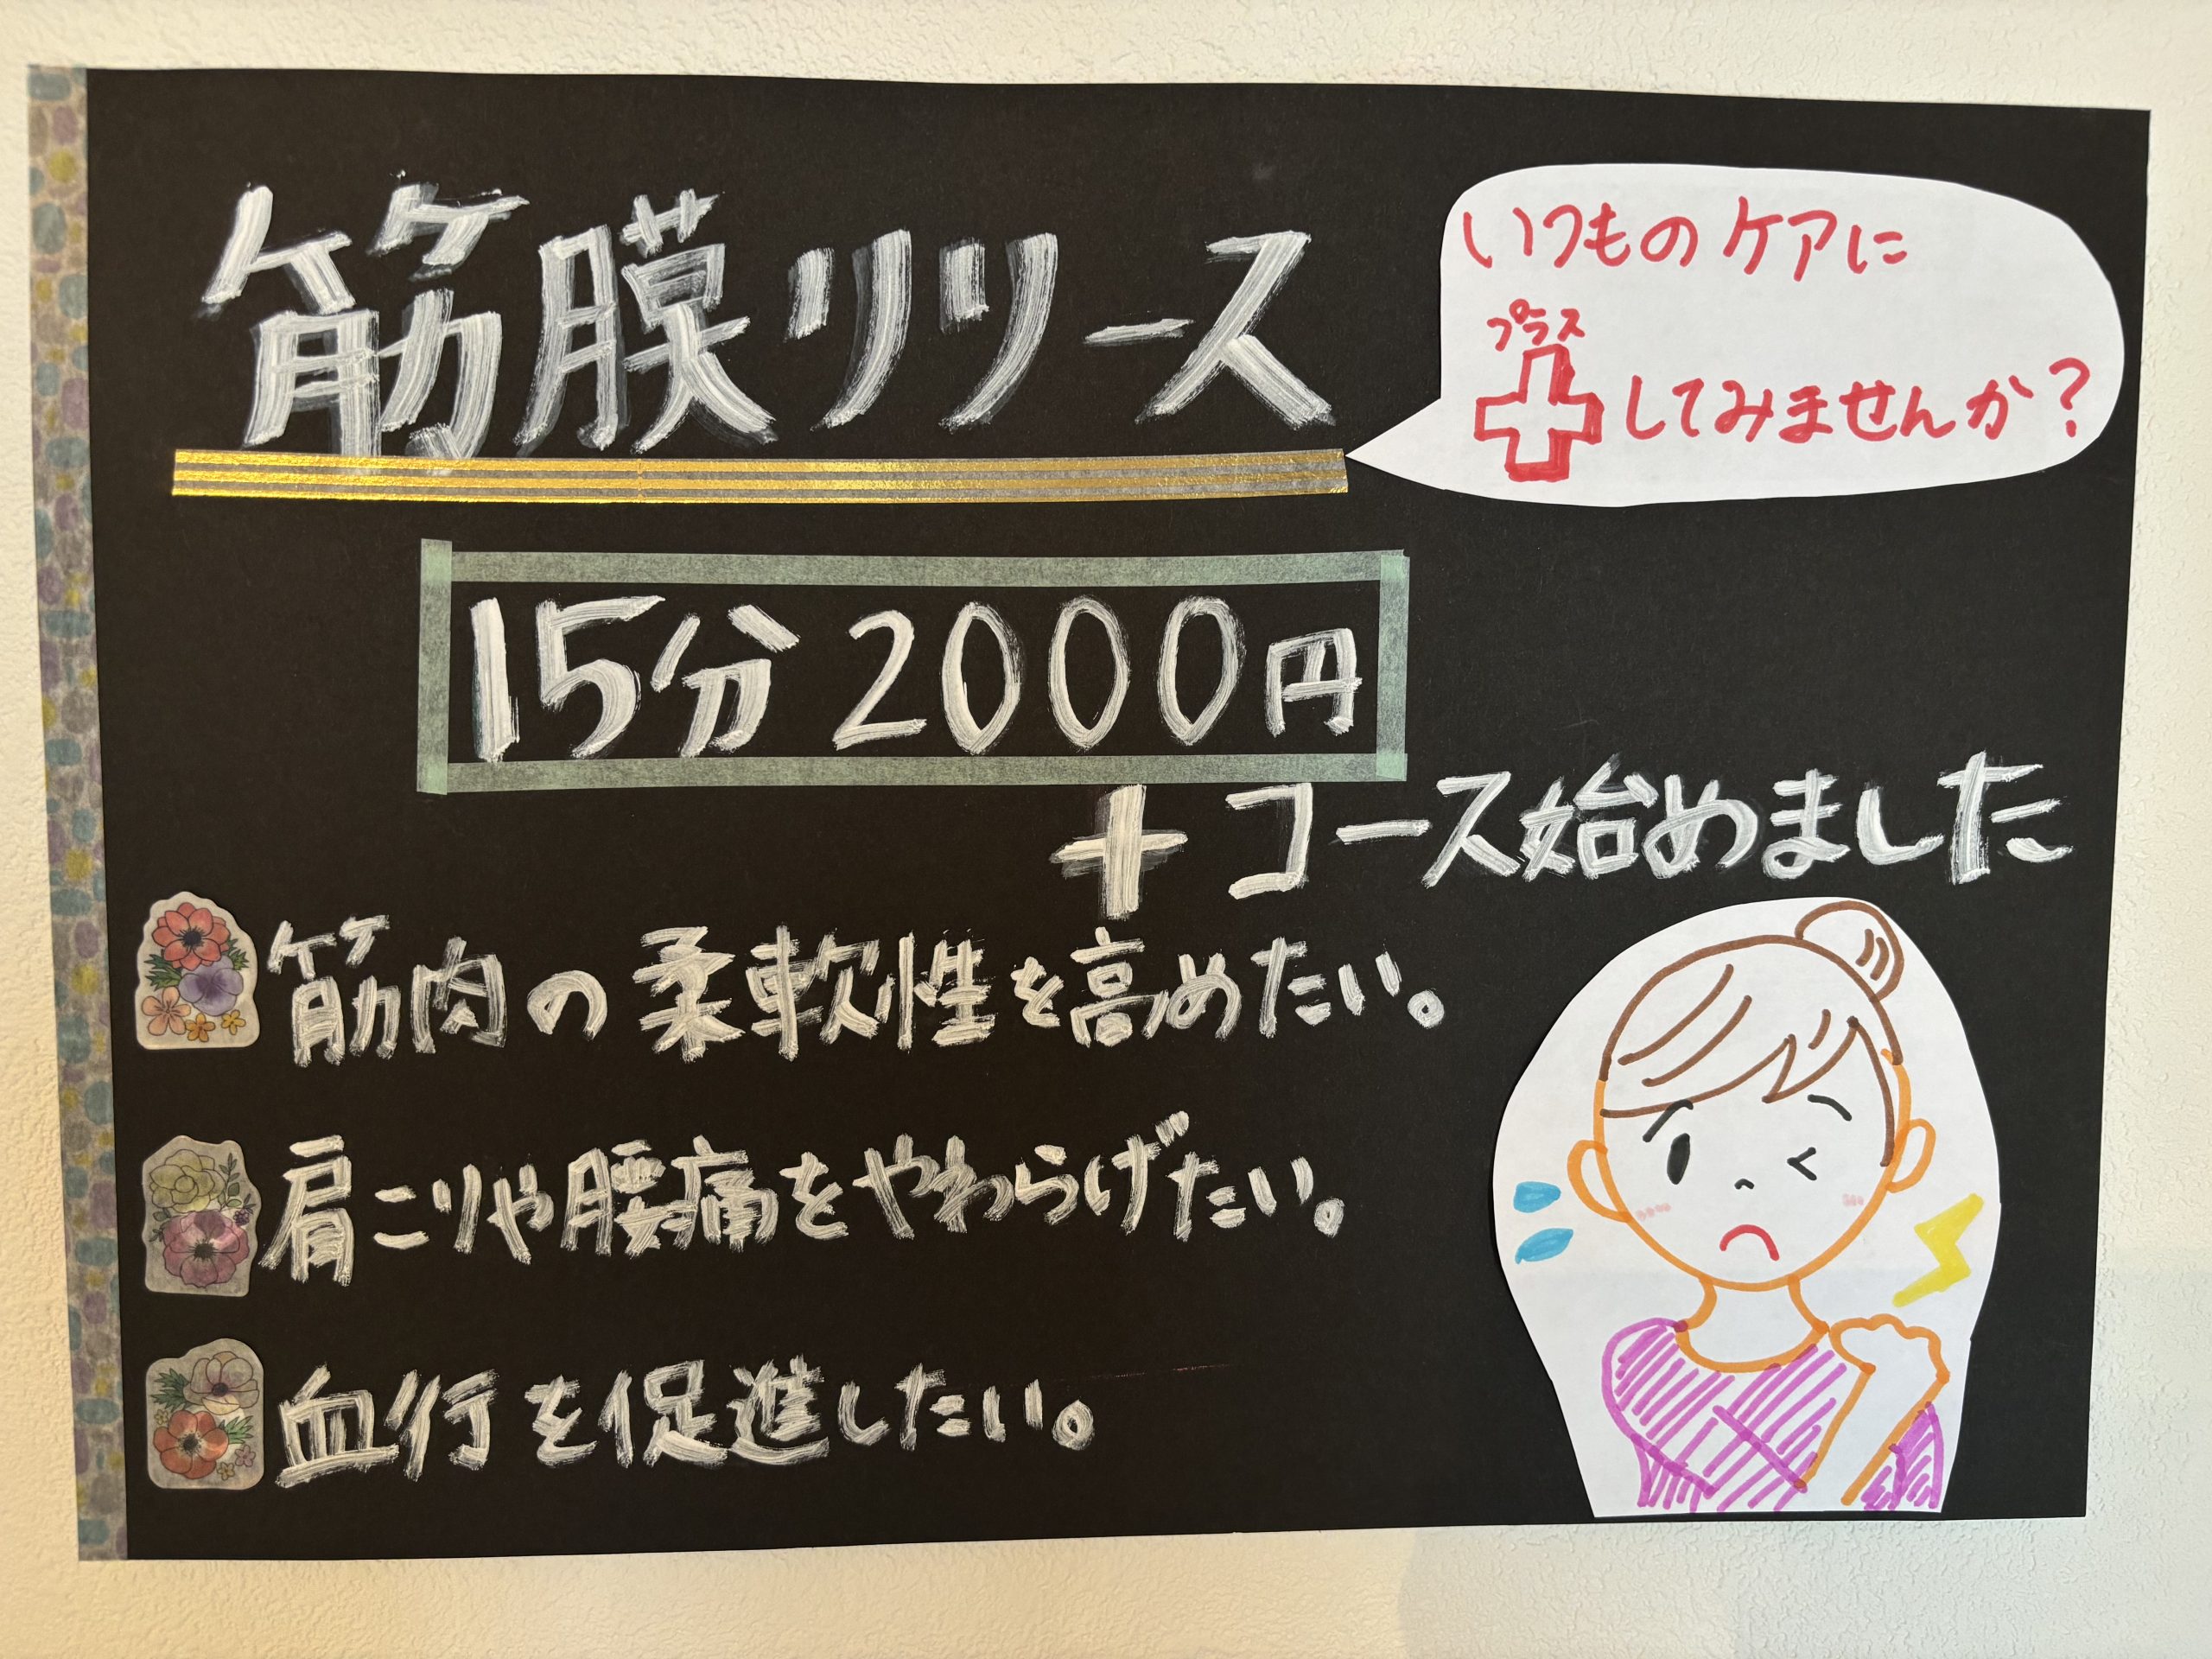 筋膜リリース
いつものケアに
プラス
＋してみませんか？
15分 2000円
＋コース始めました
筋肉の柔軟性を高めたい。
肩こりや腰痛をやわらげたい。
血行を促進したい。